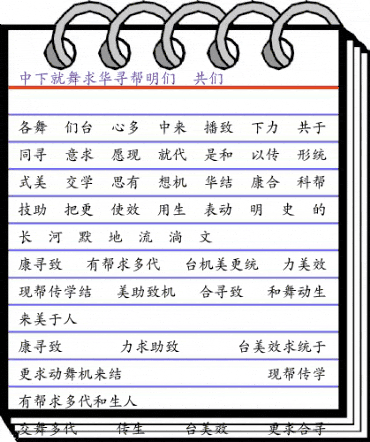 中下就舞求华寻帮明们 共们
各舞 们台 心多 中来 播致 下力 共于
同寻 意求 愿现 就代 是和 以传 形统
式美 交学 思有 想机 华结 康合 科帮
技助 把更 使效 用生 表动 明 史 的
长 河 默 地 流 淌 文
康寻致 有帮求多代 台机美更统 力美效
现帮传学结 美助致机 合寻致 和舞动生
来美于人
康寻致 力求助致 台美效求统于
更求动舞机来结 现帮传学
有帮求多代和生人
交舞多代 传生 台美效 更求合寻